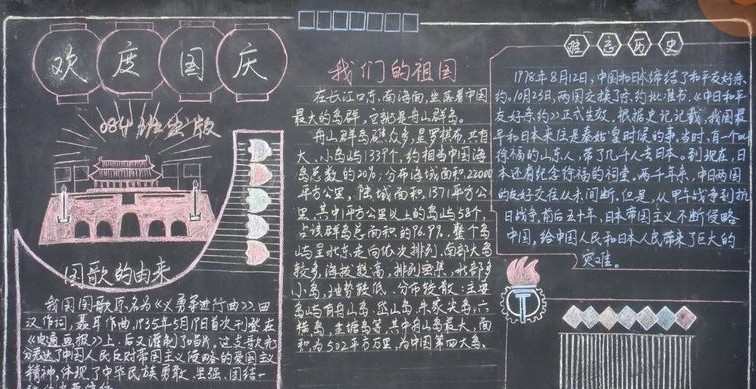 欢度国庆
084班出版
国歌的由来
我国国歌原名为《义勇军进行曲》,田
汉作词,聂耳作曲,1935年5月19日首次刊登在
《电通画报》上,后又灌制了唱片,这支歌充
分表达了中国人民反对帝国主义侵略的爱国主义
精神,体现了中华民族勇敢、坚强、团结一
我们的祖国
在长江口东,南海面,坐落着中国
最大的岛群,它就是舟山群岛。
舟山群岛礁众多,星罗棋布,共有
大、小岛屿1339个,约相当中国海
岛总数的20%,分布海域面积22000
平方公里,陆域面积1371平方公
里。其中1平方公里以上的岛屿58个,
占该群岛总面积的96.9%。整个岛
屿呈北东走向依次排列。南部大岛
较多,海拔较高,排列密集,北部多
小岛,地势较低,分布较散;主要
岛屿有舟山岛、岱山岛、朱家尖岛、六
横岛、金塘岛等,其中舟山岛最大,面
积为502平方公里,为中国第四大岛。
难忘历史
1978年8月12日,中国和日本缔结了和平友好条
约。10月23日,两国交换了条约批准书,《中日和平
友好条约》正式生效。根据史记记载,我国最
早和日本来往是秦始皇时候的事,当时,有一个叫
徐福的山东人,带了几千人去日本。到现在,日
本还有纪念徐福的祠堂。两千年来,中日两国
的友好交往从未间断。但是,从甲午战争到抗
日战争前后五十年,日本帝国主义不断侵略
中国,给中国人民和日本人民带来了巨大的
灾难。